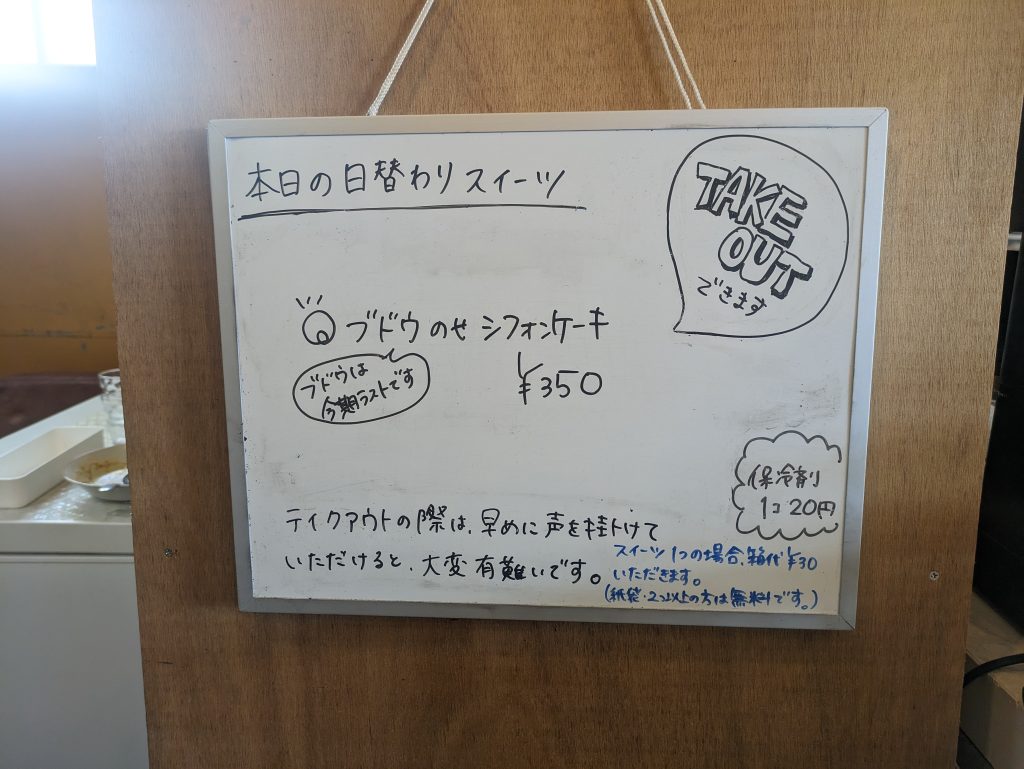 本日の日替わりスイーツ
TAKE
OUT
できます
ブドウのせシフォンケーキ
¥350
ブドウは
今期ラストです
保冷剤
1コ20円
テイクアウトの際は、早めに声を掛けて
いただけると、大変有難いです。
スイーツ1つの場合、箱代¥30
いただきます。
(紙袋・2つ以上の方は無料です。)